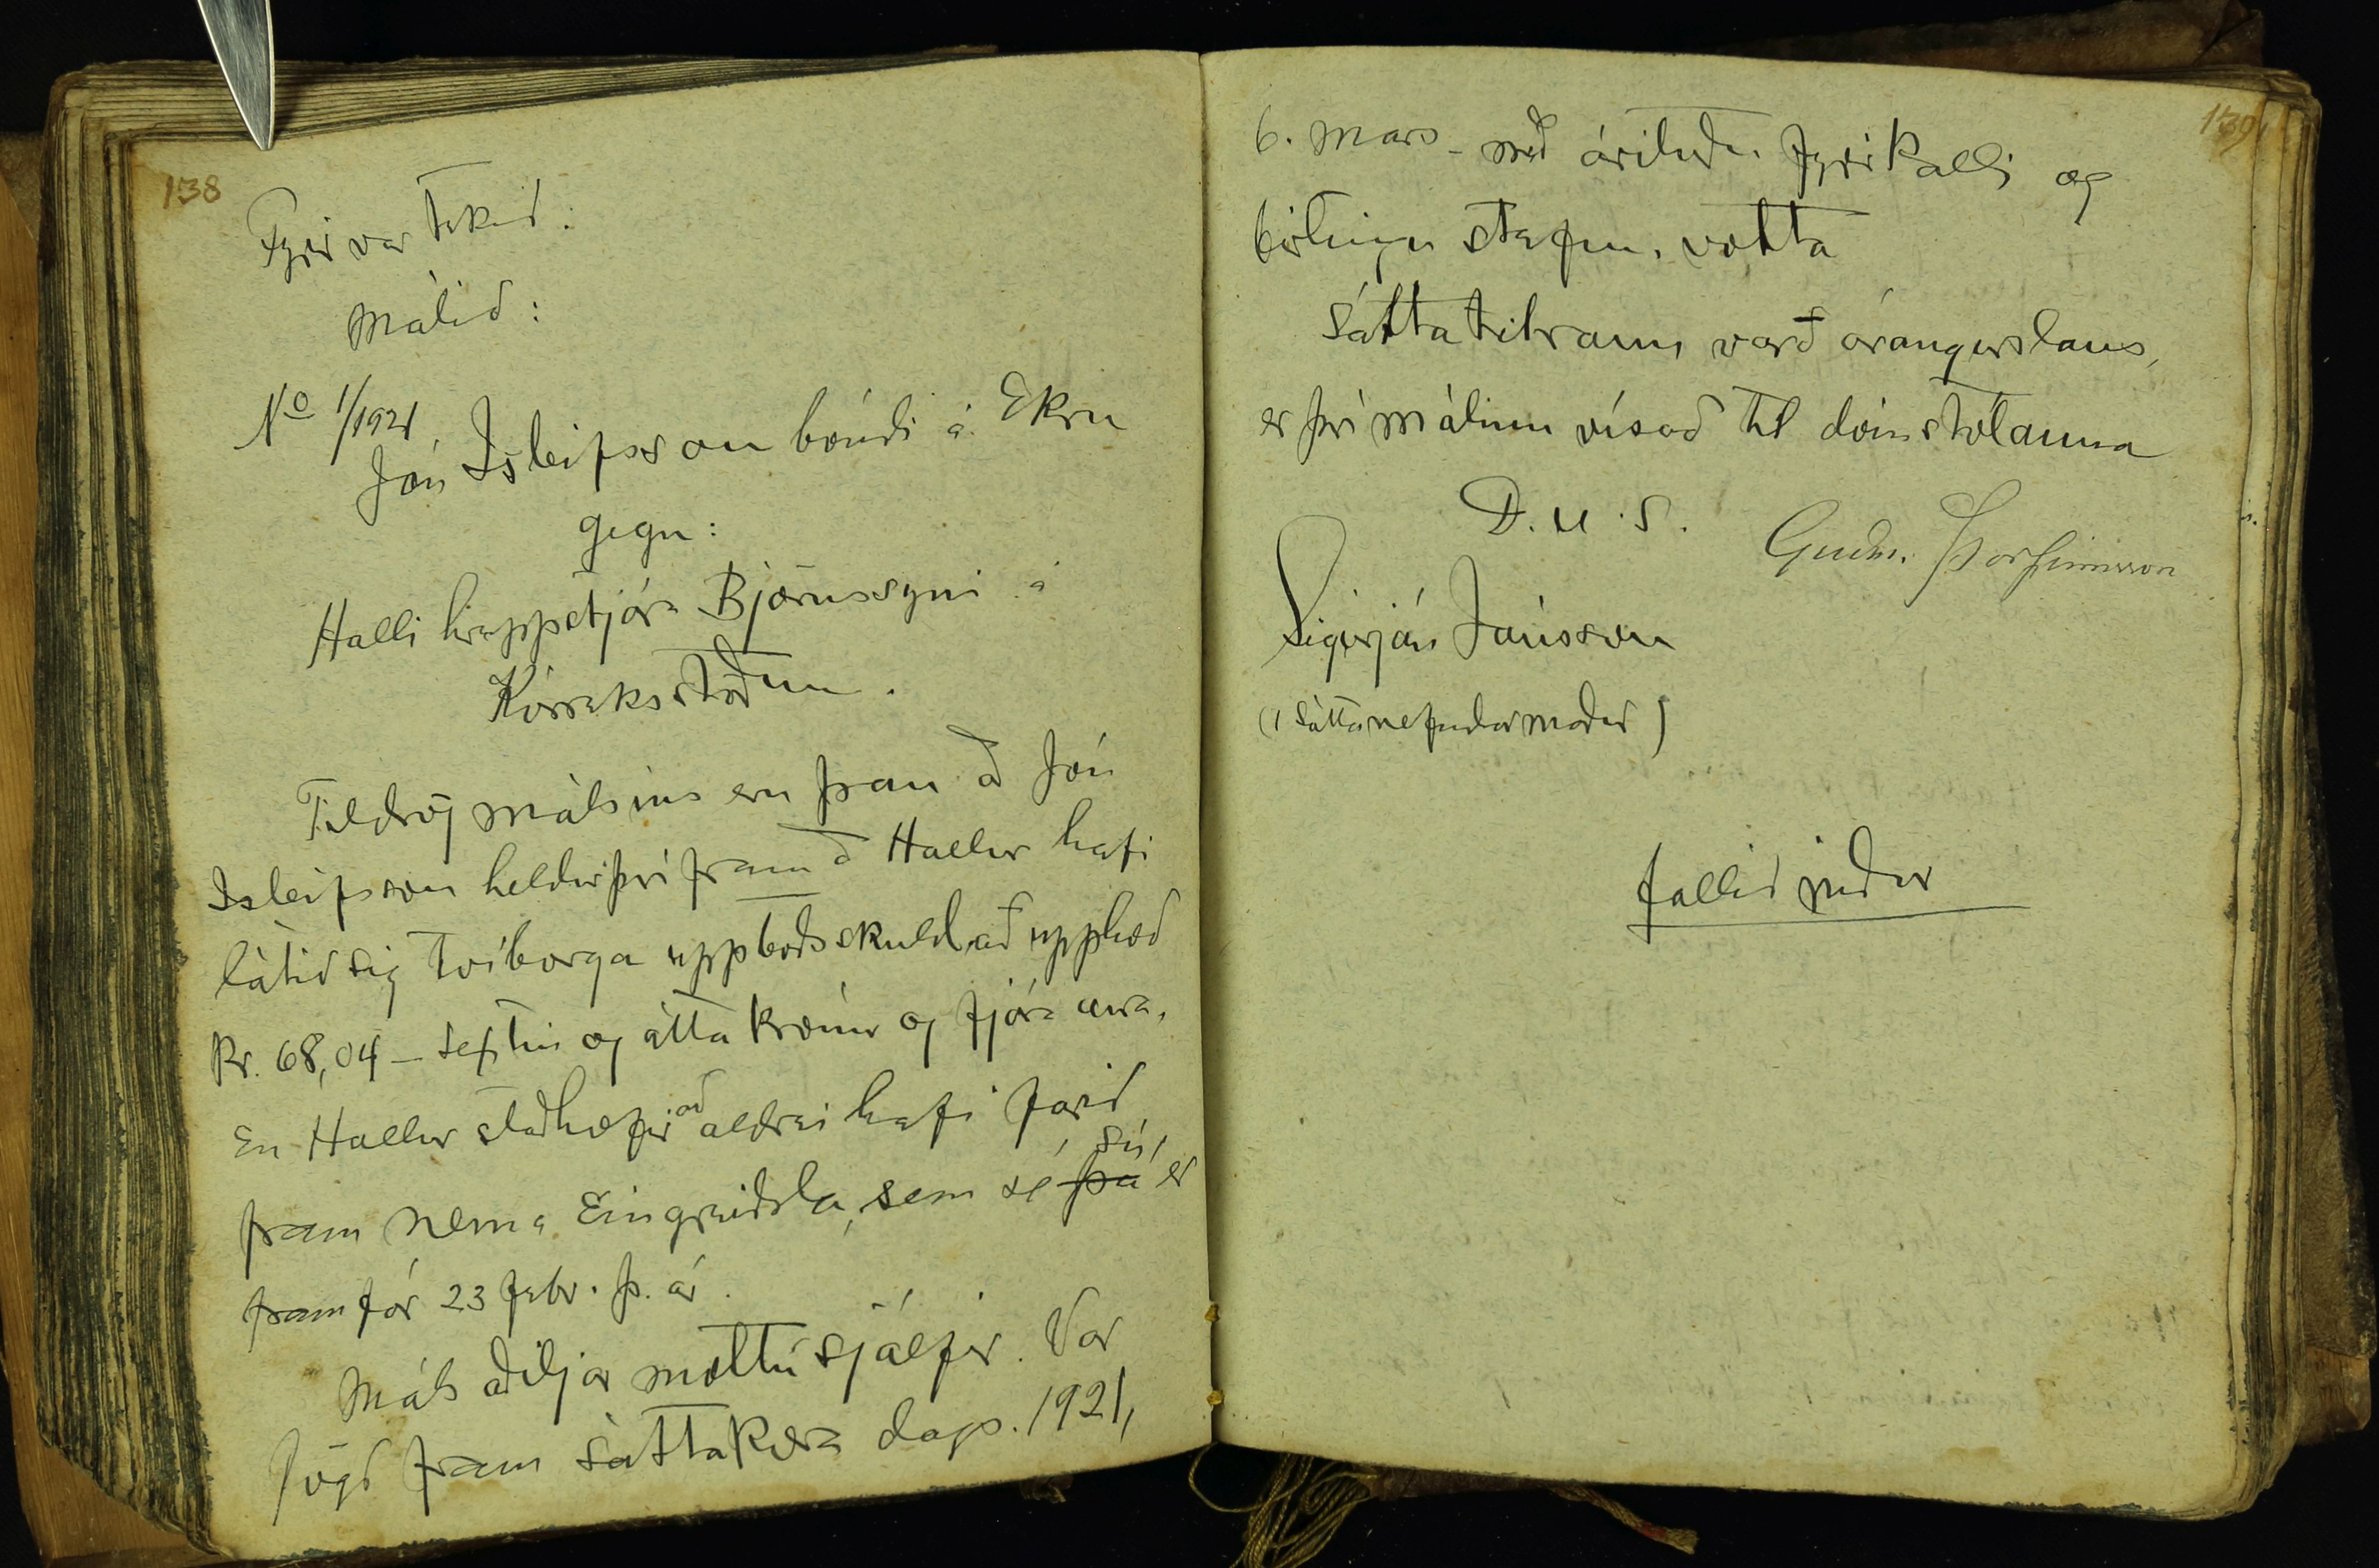 138
Fyrir var tekið:
Málið:
No 1/1921.
Jón Ísleifsson bóndi á Ekru
gegn:
Halli hreppstjóra Björnssyni á
Kórreksstöðum.
Tildrög málsins eru þau að Jón
Isleifsson heldur því fram að Hallur hafi
látið sig tvíborga uppboðsskuld að upphæð
kr. 68,04 – sextíu og átta krónur og fjóra aura,
En Hallur staðhæfir að aldrei hafi farið
fram nema Ein greiðsla, sem sé þá sú, er
fram fór 23 febr. þ. ár.
Máls aðiljar mættu sjálfir. Var
lögð fram sáttakæra dags. 1921,
139
6. mars – með árituðu fyrirkalli og
birtingu stefnu. votta
Sátta tilraun varð árangurslaus,
er því málinu vísað til dómstólanna
D. u. S.
Guðm. Þorfinnsson
Sigurjón Jónsson
(1 sáttanefndarmaður)
fallið niður